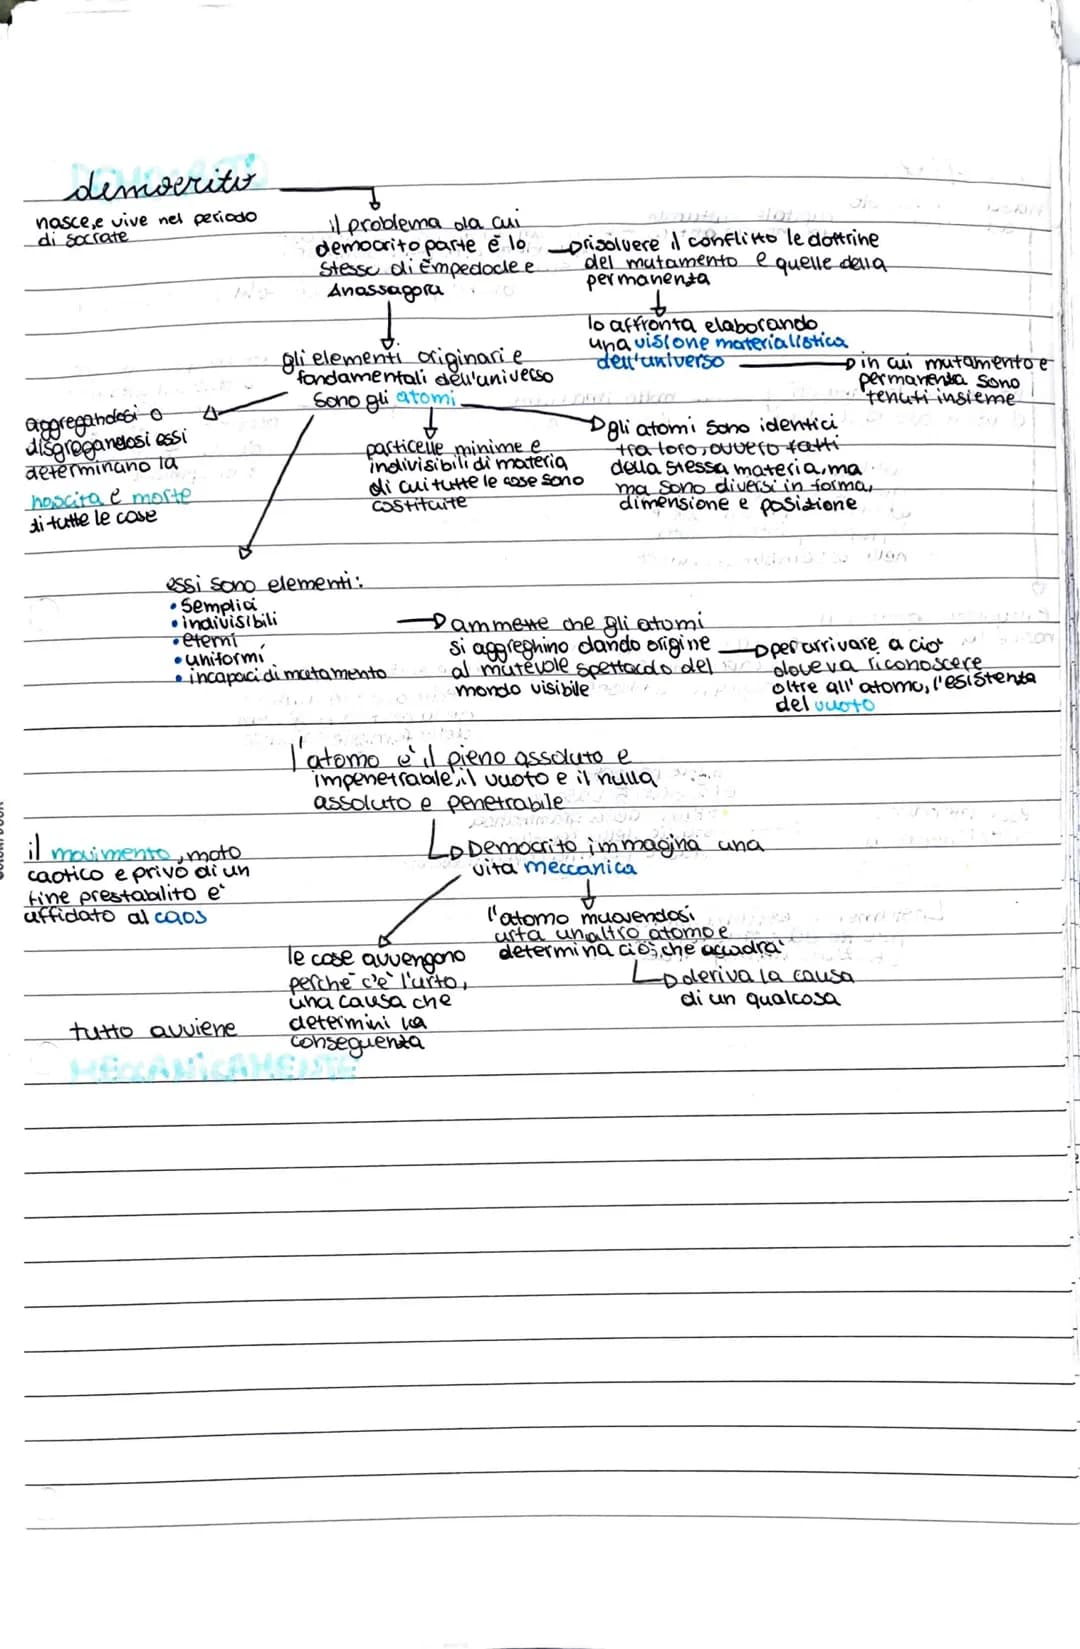 democrito
nasce,e vive nel periodo
di socrate
il problema da cui
democrito parte è lo
stesso di Empedocle e
Anassagora
risolvere il conflitto le dottrine
del mutamento e quelle della
permanenza
lo affronta elaborando
una visione materialistica
dell'universo
in cui mutamento e
permanenza sono
tenuti insieme
gli elementi originari e
fondamentali dell'universo
sono gli atomi
aggregandosi o
disgregandosi essi
determinano la
nascita e morte
di tutte le cose
particelle minime e
indivisibili di materia
di cui tutte le cose sono
costituite
gli atomi sono identici
tra loro, ovvero fatti
della stessa materia, ma
ma sono diversi in forma,
dimensione e posizione
essi sono elementi:
• semplici
• indivisibili
• eterni
• uniformi
• incapaci di mutamento
ammette che gli atomi
si aggreghino dando origine
al mutevole spettacolo del
mondo visibile
per arrivare a ciò
doveva riconoscere
oltre all'atomo, l'esistenza
del vuoto
l'atomo è il pieno assoluto e
impenetrabile, il vuoto e il nulla
assoluto e penetrabile
Democrito immagina una
vita meccanica
il movimento, moto
caotico e privo di un
fine prestabilito e'
affidato al caos
l'atomo muovendosi
urta un altro atomo e
determina ciò che accadrà
deriva la causa
di un qualcosa
le cose avvengono
perché c'è l'urto,
una causa che
determini la
conseguenza
tutto avviene